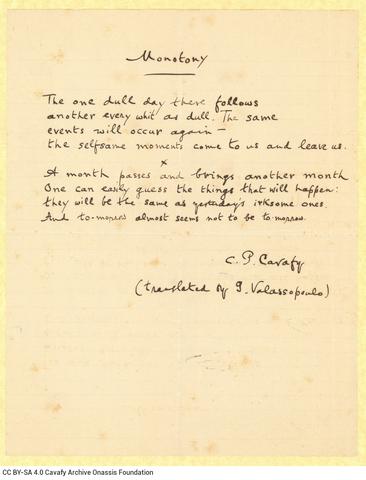 Monotony
The one dull day there follows
another every whit as dull. The same
events will occur again —
the selfsame moments come to us and leave us.
x
A month passes and brings another month
One can easily guess the things that will happen:
they will be the same as yesterday's irksome ones.
And to-morrow almost seems not to be to-morrow.
C. P. Cavafy
(translated by G. Valassopoulo)
CC BY-SA 4.0 Cavafy Archive Onassis Foundation